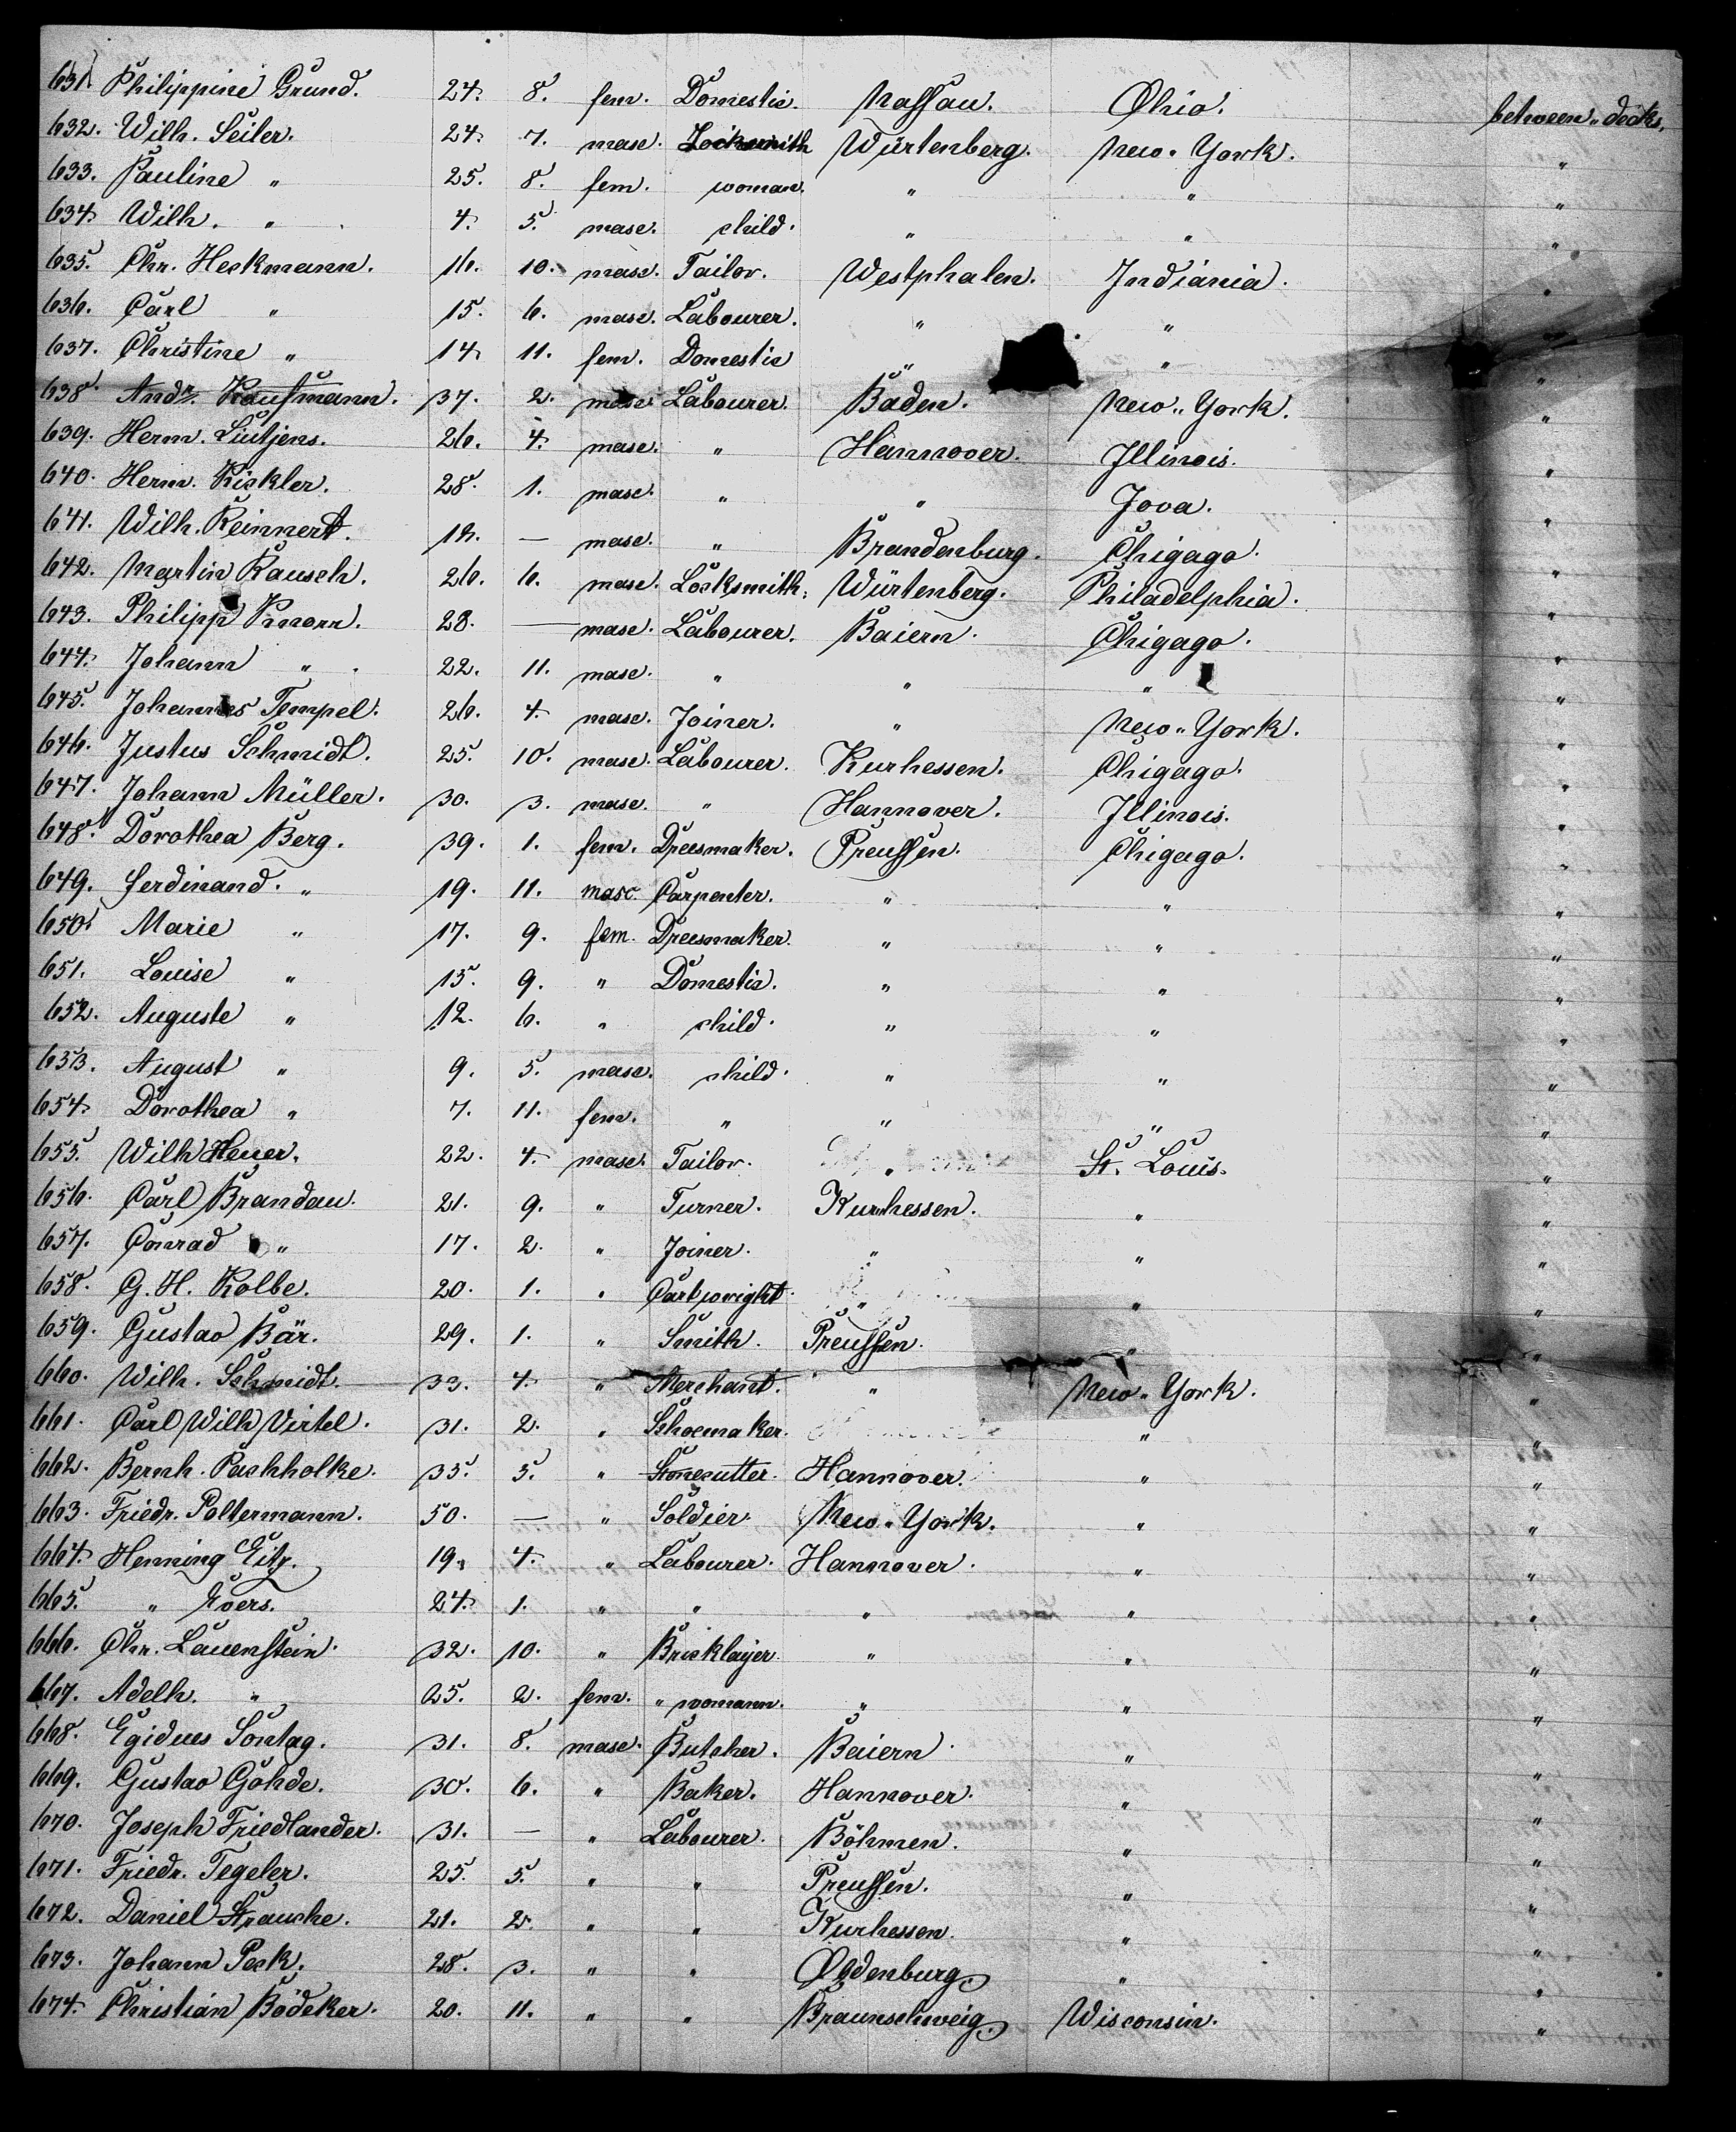 631. Philippine Grund. 24. 8. fem. Domestic. Nassau. Ohio. between-decks.
632. Wilh. Seiler. 24. 7. masc. Locksmith Würtenberg. New-York. "
633. Pauline " 25. 8. fem. woman. " " "
634. Wilh. " 4. 5. masc. child. " " "
635. Chr. Heckmann. 16. 10. masc. Tailor. Westphalen. Indiania. "
636. Carl " 15. 6. masc. Labourer. " " "
637. Christine " 14. 11. fem. Domestic " " "
638. Andr. Kaufmann. 37. 2. masc. Labourer. Baden. New-York. "
639. Herm. Lüutjens. 26. 4. masc. " Hannover. Illinois. "
640. Herm. Kickler. 28. 1. masc. " " Jova. "
641. Wilh. Reinnert. 18. — masc. " Brandenburg. Chigago. "
642. Martin Rausch. 26. 6. masc. Locksmith. Würtenberg. Philadelphia. "
643. Philipp Knorr. 28. — masc. Labourer. Baiern. Chigago. "
644. Johann " 22. 11. masc. " " " "
645. Johannes Tempel. 26. 4. masc. Joiner. " New-York. "
646. Justus Schmidt. 25. 10. masc. Labourer. Kurhessen. Chigago. "
647. Johann Müller. 30. 3. masc. " Hannover. Illinois. "
648. Dorothea Berg. 39. 1. fem. Dresmaker. Preussen. Chigago. "
649. Ferdinand. " 19. 11. masc. Carpenter. " " "
650. Marie " 17. 9. fem. Dresmaker. " " "
651. Louise " 15. 9. " Domestic. " " "
652. Auguste " 12. 6. " child. " " "
653. August " 9. 5. masc. child. " " "
654. Dorothea " 7. 11. fem. " " " "
655. Wilh Heuer. 22. 4. masc. Tailor. " St. Louis. "
656. Carl Brandau. 21. 9. " Turner. Kurhessen. " "
657. Conrad " 17. 2. " Joiner. " " "
658. G. H. Kolbe. 20. 1. " Cartwright. " " "
659. Gustav Bär. 29. 1. " Smith. Preussen. " "
660. Wilh. Schmidt. 33. 4. " Merchant. " New-York. "
661. Carl Wilh Virtel. 31. 2. " Schoemaker. " "
662. Bernh. Pachholke. 35. 5. " Stonecutter. Hannover. " "
663. Friedr. Poltermann. 50. — " Soldier. New-York. " "
664. Henning Eitz. 19. 4. " Labourer. Hannover. " "
665. " Evers. 24. 1. " " " " "
666. Chr. Lauenstein. 32. 10. " Bricklayer. " " "
667. Adelh. " 25. 2. fem. " womann. " " "
668. Egidues Sontag. 31. 8. masc. Butcher. Baiern. " "
669. Gustav Göhde. 30. 6. " Baker. Hannover. " "
670. Joseph Friedlander. 31. — " Labourer. Böhmen. " "
671. Friedr. Tegeler. 25. 5. " " Preussen. " "
672. Daniel Strauche. 21. 2. " " Kurhessen. " "
673. Johann Peck. 28. 3. " " Oldenburg. " "
674. Christian Bödeker. 20. 11. " " Braunschweig. Wisconsin. "